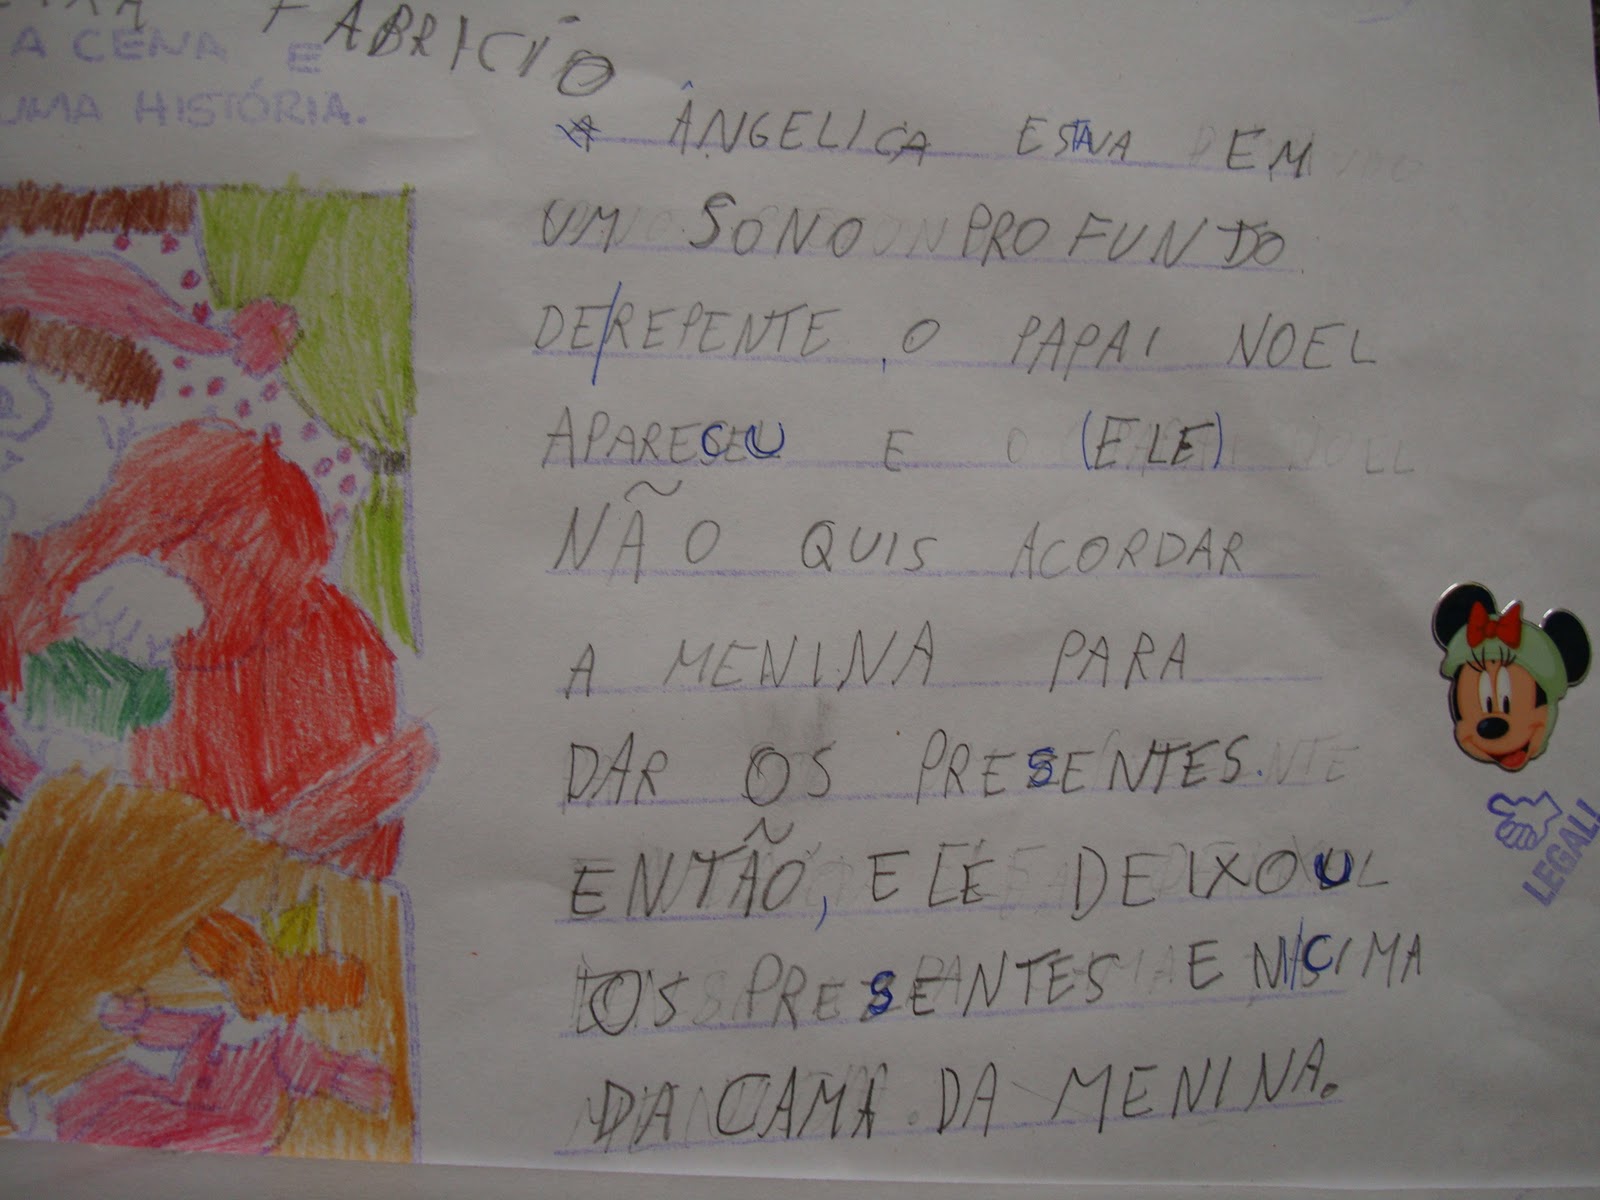 FABRICIO
A CENA E
UMA HISTÓRIA.
ÂNGELICA ESTAVA EM
UM SONO PROFUNDO
DE/REPENTE, O PAPAI NOEL
APARECEU E (ELE)
NÃO QUIS ACORDAR
A MENINA PARA
DAR OS PRESENTES.
ENTÃO, ELE DEIXOU
OS PRESENTES EM/CIMA
DA CAMA DA MENINA.
LEGAL!